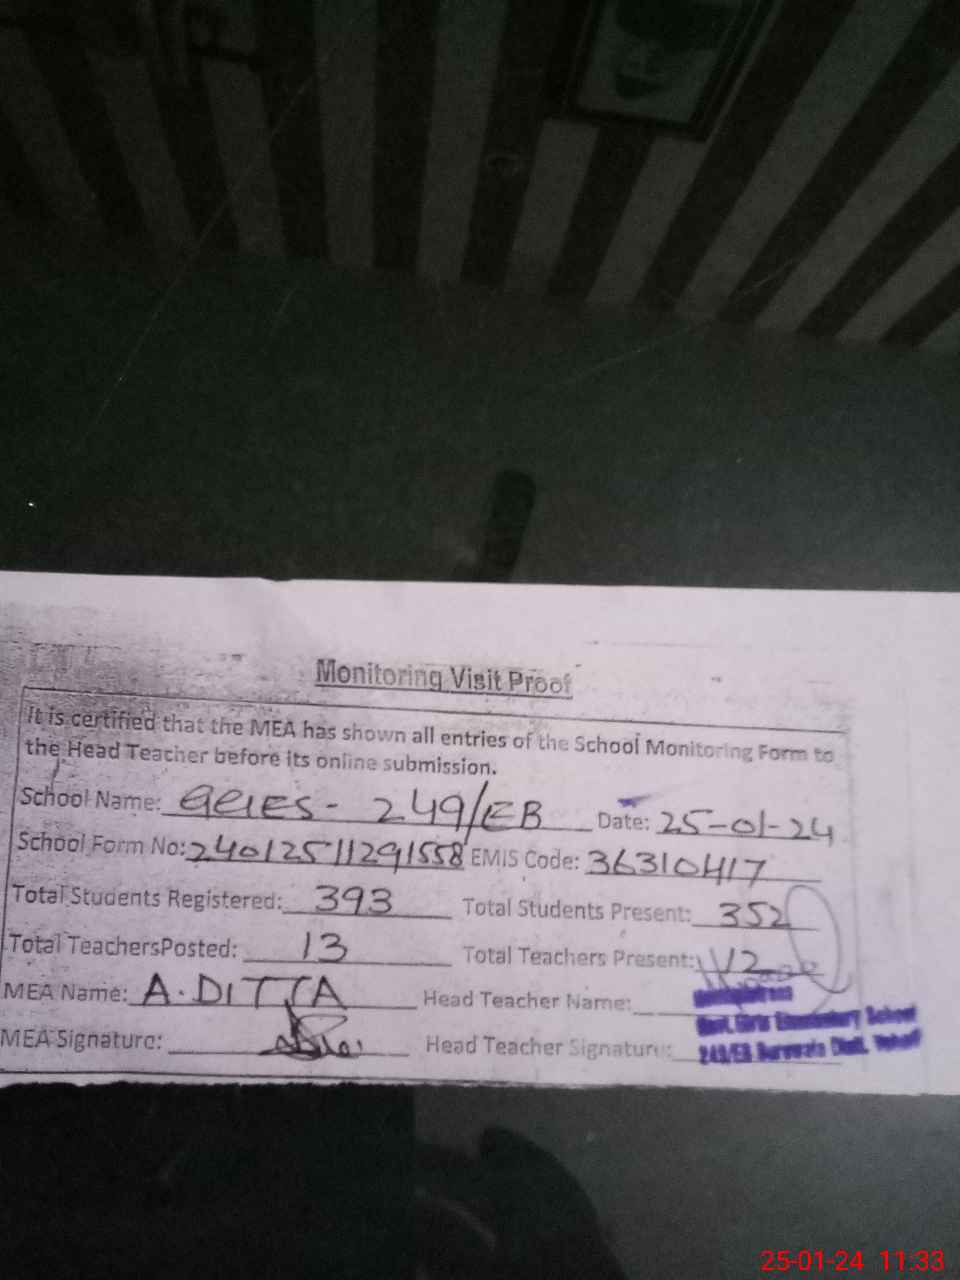 Monitoring Visit Proof
It is certified that the MEA has shown all entries of the School Monitoring Form to
the Head Teacher before its online submission.
School Name: GGES - 249/EB Date: 25-01-24
School Form No: 24012511291558 EMIS Code: 36310417
Total Students Registered: 393 Total Students Present: 352
Total TeachersPosted: 13 Total Teachers Present: 12
MEA Name: A.DITTA Head Teacher Name:
MEA Signature: Head Teacher Signature:
Headmistress
Govt. Girls Elementary School
249/EB Burewala Distt. Vehari
25-01-24 11:33